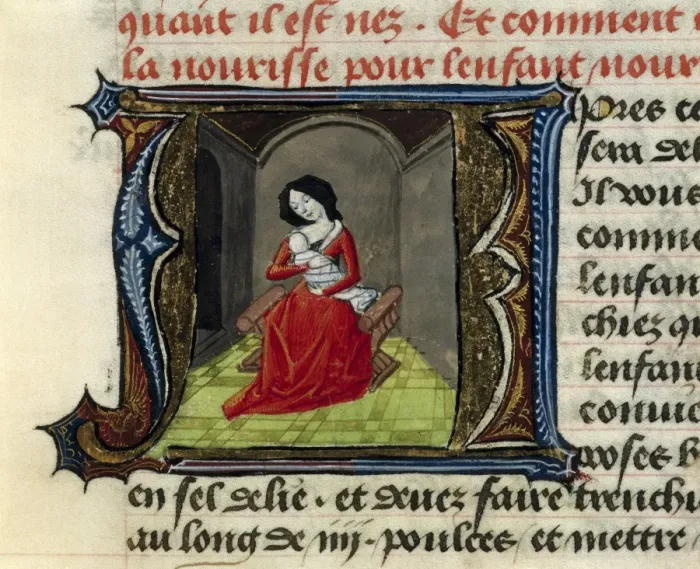 quant il est nez. Et comment
la nourisse pour lenfant nour
Apres ce
sera del
Il vous
comme
lenfan
chiez q
lenfan
conui
poses
en sel delie. et deuez faire trenchi
au long de iiij. poulces et mettre